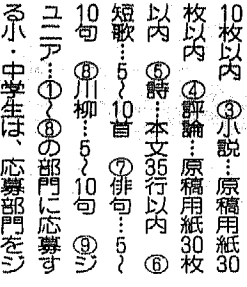 10枚以内 ③小説…原稿用紙30
枚以内 ④評論…原稿用紙30枚
以内 ⑤詩…本文35行以内 ⑥
短歌…5〜10首 ⑦俳句…5〜
10句 ⑧川柳…5〜10句 ⑨ジ
ュニア…①〜⑧の部門に応募す
る小・中学生は、応募部門をジ